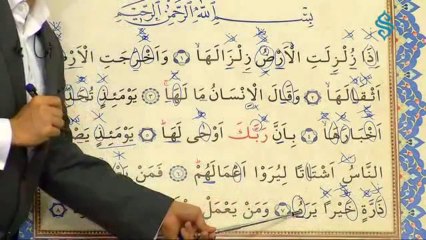 بِسْمِ اللّٰهِ الرَّحْمٰنِ الرَّحِيمِ
اِذَا زُلْزِلَتِ الْاَرْضُ زِلْزَالَهَا ﴿١﴾ وَاَخْرَجَتِ الْاَرْضُ
اَثْقَالَهَا ﴿٢﴾ وَقَالَ الْاِنْسَانُ مَا لَهَا ﴿٣﴾ يَوْمَئِذٍ
اَخْبَارَهَا ﴿٤﴾ بِاَنَّ رَبَّكَ اَوْحٰى لَهَا ﴿٥﴾ يَوْمَئِذٍ
النَّاسُ اَشْتَاتًا لِيُرَوْا اَعْمَالَهُمْ ﴿٦﴾ فَمَنْ
ذَرَّةٍ خَيْرًا يَرَهُ ﴿٧﴾ وَمَنْ يَعْمَلْ